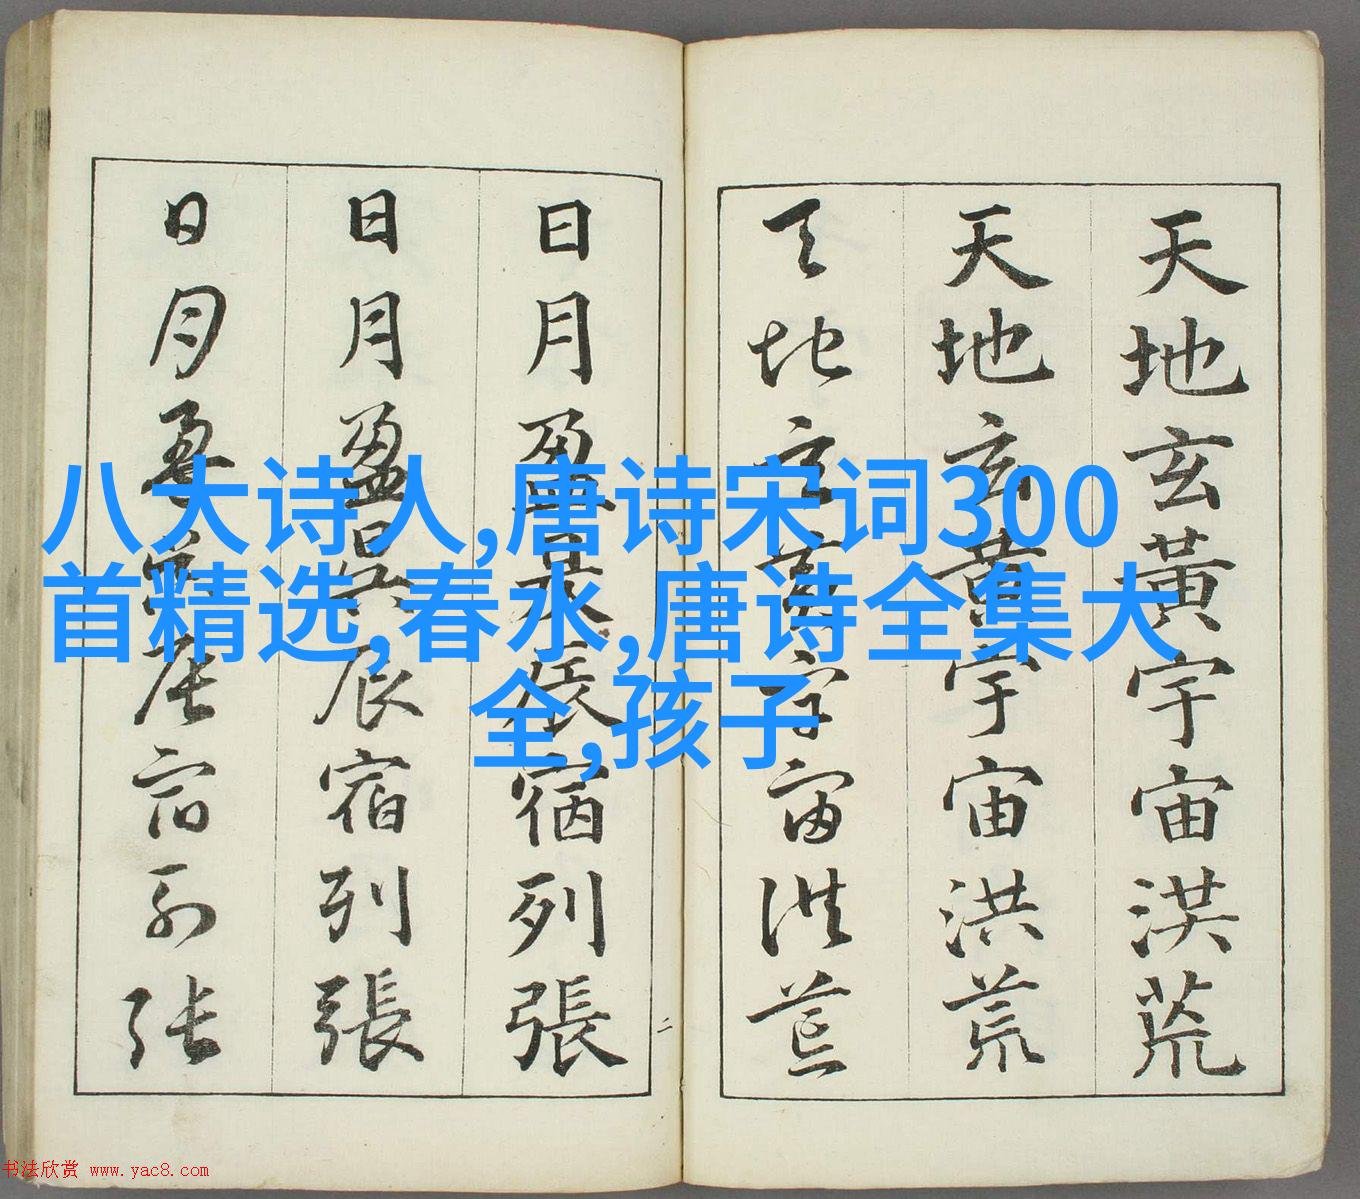 天地玄黃宇宙洪荒
天地玄黃宇宙洪荒
天地玄黃宇宙洪荒
二
日月盈昃辰宿列張
日月盈昃辰宿列張
日月盈昃辰宿列張
八大诗人,唐诗宋词300
首精选,春水,唐诗全集大
全,孩子
书法欣赏 www.yac8.com